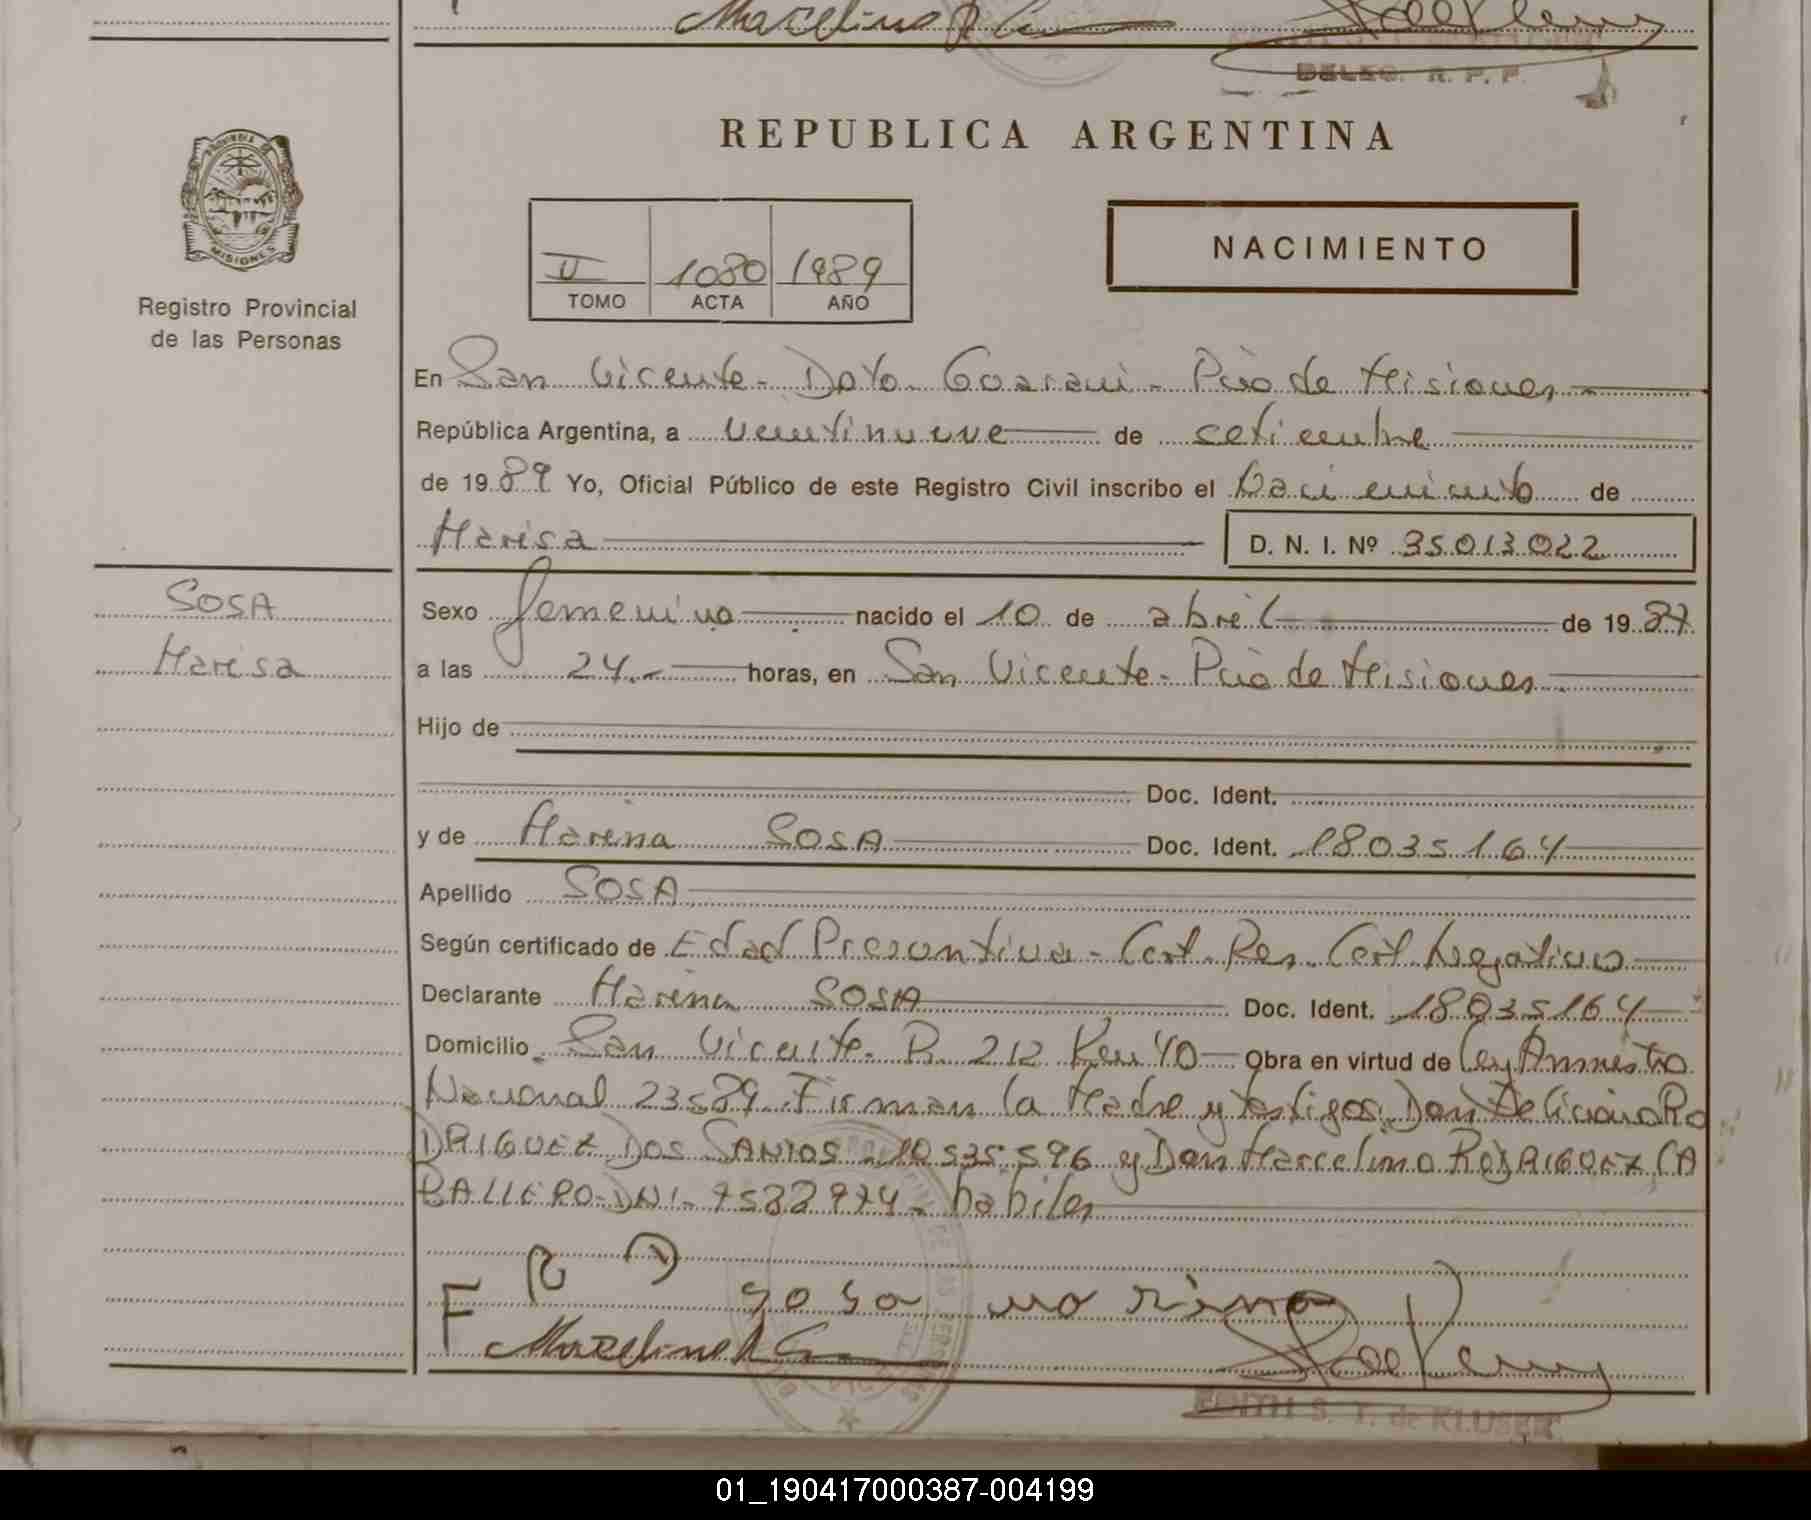 Marcelino R C
DELEG. R. P. P.
REPUBLICA ARGENTINA
PROVINCIA DE
MISIONES
Registro Provincial
de las Personas
II 1080 1989
TOMO ACTA AÑO
NACIMIENTO
En San Vicente - Dpto. Guarani - Pcia de Misiones
República Argentina, a veintinueve de setiembre
de 1989 Yo, Oficial Público de este Registro Civil inscribo el Nacimiento de
Marisa D. N. I. Nº 35013022
SOSA
Marisa
Sexo femenino nacido el 10 de abril de 1987
a las 24.- horas, en San Vicente - Pcia de Misiones
Hijo de
Doc. Ident.
y de Marina SOSA Doc. Ident. 18035164
Apellido SOSA
Según certificado de Edad Presuntiva - Cert. Res. Cert Negativo
Declarante Marina SOSA Doc. Ident. 18035164
Domicilio San Vicente - R 212 Km 40 Obra en virtud de Ley Amnistia
Nacional 23589. Firman la Madre y testigos Don Feliciano Ro
DRIGUEZ Dos SANTOS 10535596 y Don Marcelino RODRIGUEZ CA
BALLERO - DNI - 7588974 - habiles
sosa marina
F Marcelino R C
EDITH S. T. de KLUSENER
01_190417000387-004199